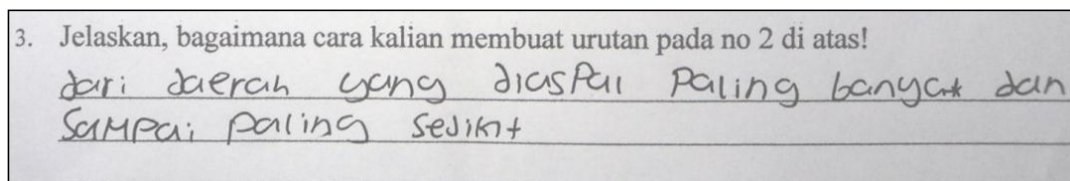 3. Jelaskan, bagaimana cara kalian membuat urutan pada no 2 di atas!
dari daerah yang diaspal paling banyak dan
Sampai paling sedikit